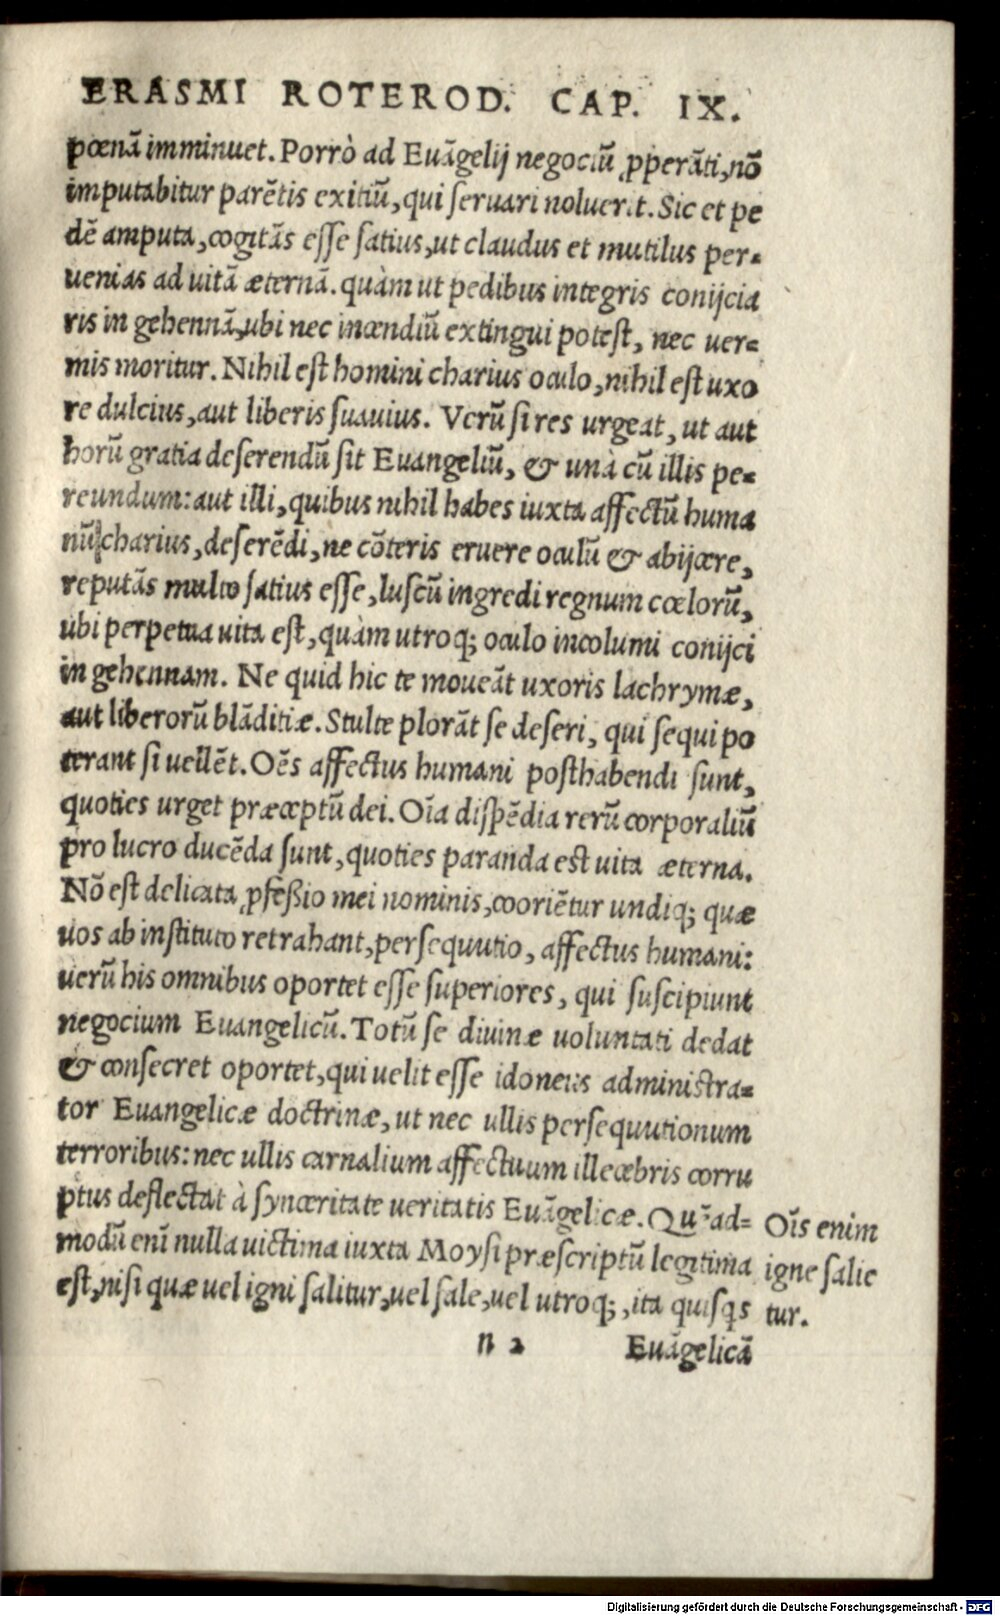 ERASMI ROTEROD. CAP. IX.
pœnã imminuet. Porrò ad Euãgelij negociũ ꝓperãti, nõ
imputabitur parẽtis exitiũ, qui seruari noluerit. Sic et pe
dẽ amputa, cogitãs esse satius, ut claudus et mutilus per-
uenias ad uitã æternã. quàm ut pedibus integris conijcia
ris in gehennã, ubi nec incendiũ extingui potest, nec uer-
mis moritur. Nihil est homini charius oculo, nihil est uxo
re dulcius, aut liberis suauius. Verũ si res urgeat, ut aut
horũ gratia deserendũ sit Euangeliũ, & unà cũ illis pe-
reundum: aut illi, quibus nihil habes iuxta affectũ huma
nũ charius, deserẽdi, ne cõteris eruere oculũ & abijcere,
reputãs multo satius esse, luscũ ingredi regnum cœlorũ,
ubi perpetua uita est, quàm utroq; oculo incolumi conijci
in gehennam. Ne quid hic te moueãt uxoris lachrymæ,
aut liberorũ blãditiæ. Stulte plorãt se deseri, qui sequi po
terant si uellẽt. Oẽs affectus humani posthabendi sunt,
quoties urget præceptũ dei. Oĩa dispẽdia rerũ corporaliũ
pro lucro ducẽda sunt, quoties paranda est uita æterna.
Nõ est delicata ꝓfeßio mei nominis, cooriẽtur undiq; quæ
uos ab instituto retrahant, persequutio, affectus humani:
uerũ his omnibus oportet esse superiores, qui suscipiunt
negocium Euangelicũ. Totũ se diuinæ uoluntati dedat
& consecret oportet, qui uelit esse idoneus administra-
tor Euangelicæ doctrinæ, ut nec ullis persequutionum
terroribus: nec ullis carnalium affectuum illecebris corru
ptus deflectat à synceritate ueritatis Euãgelicæ. Quẽad-
modũ enĩ nulla uictima iuxta Moysi præscriptũ legitima
est, nisi quæ uel igni salitur, uel sale, uel utroq;, ita quisq̃s
Oĩs enim
igne salie
tur.
n 2 Euãgelicã
Digitalisierung gefördert durch die Deutsche Forschungsgemeinschaft - DFG